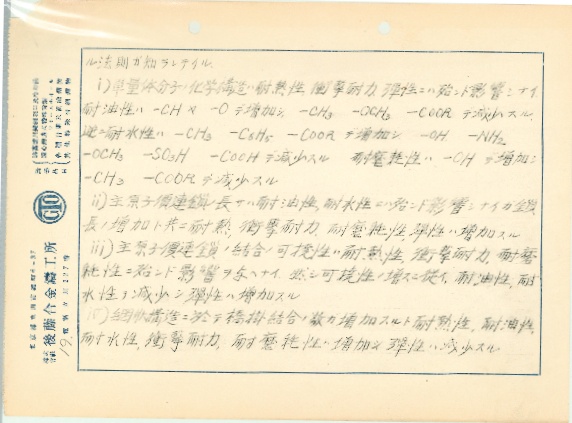 ル法則ガ知ラレテイル
i) 単量体分子ノ化学構造ハ耐熱性、衝撃耐力、弾性ニハ殆ンド影響シナイ
耐油性ハ -CH -O デ増加シ、-CH₃ -OCH₃ -COOR デ減少スル
逆ニ耐水性ハ -CH₃ -C₆H₅ -COOR デ増加シ -OH -NH₂
-OCH₃ -SO₃H -COOH デ減少スル 耐磨耗性ハ -CH デ増加シ
-CH₃ -COOR デ減少スル
ii) 主原子価連鎖ノ長サハ耐油性、耐水性ニハ殆ンド影響シナイガ鎖
長ノ増加ト共ニ耐熱、衝撃耐力、耐磨耗性、弾性ハ増加スル
iii) 主原子価連鎖ノ結合ノ可撓性ハ耐熱性、衝撃耐力、耐磨
耗性ニ殆ンド影響ヲ与ヘナイ 然シ可撓性ノ増スニ従イ、耐油性、耐
水性ヲ減少シ弾性ハ増加スル
iv) 網状構造ニ於テ橋掛結合ノ数ガ増加スルト耐熱性、耐油性、
耐水性、衝撃耐力、耐磨耗性ハ増加シ弾性ハ減少スル
GTO
株式会社 後藤合金鑄工所
19.